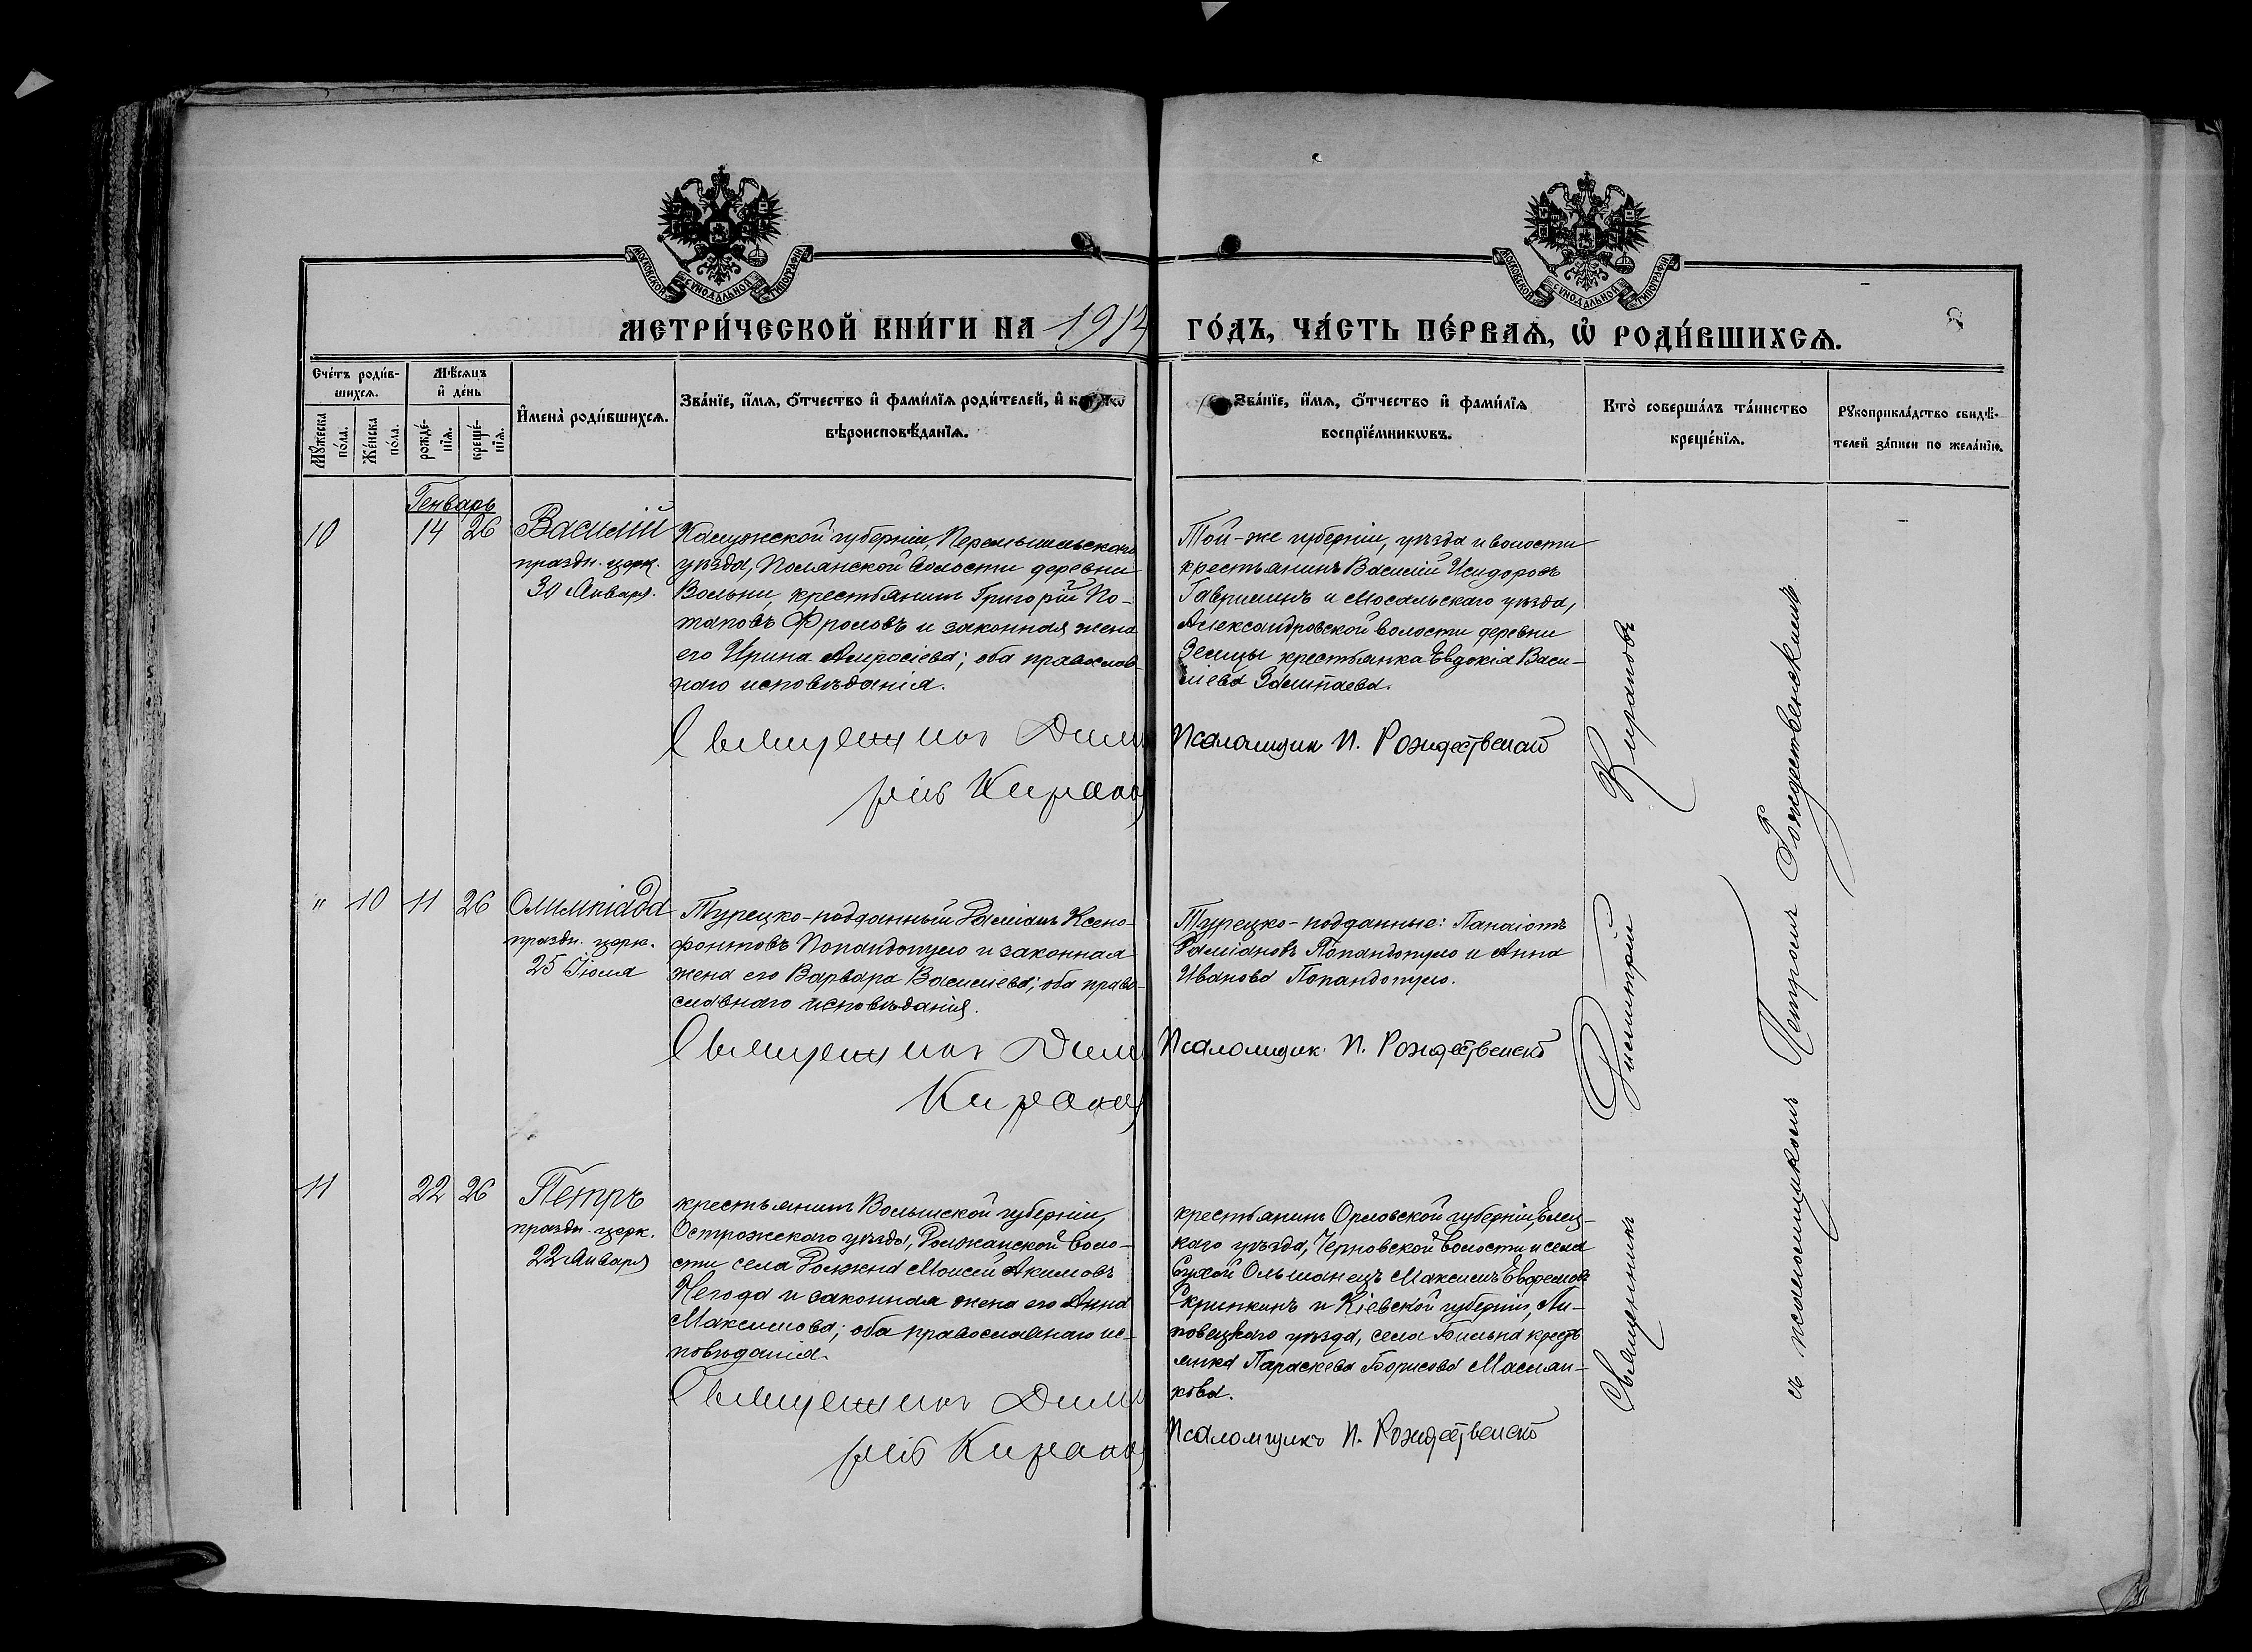 МОСКОВСКОЙ СѴНОДАЛЬНОЙ ТИПОГРАФІИ
МОСКОВСКОЙ СѴНОДАЛЬНОЙ ТИПОГРАФІИ
МЕТРИ́ЧЕСКОЙ КНИ́ГИ НА 1914 ГО́ДЪ, ЧА́СТЬ ПЕ́РВАѦ, Ѡ҆ РОДИ́ВШИХСѦ.
Сче́тъ роди́в-
шихсѧ.
Мꙋ́жеска
по́ла.
Же́нска
по́ла.
Мѣ́сѧцъ
и҆ де́нь
рожде́-
нїѧ.
креще́-
нїѧ.
И҆мена̀ роди́вшихсѧ.
Зва́нїе, и҆́мѧ, ѻ҆́тчество и҆ фами́лїѧ роди́телей, и҆
вѣроисповѣ́данїѧ.
Зва́нїе, и҆́мѧ, ѻ҆́тчество и҆ фами́лїѧ
воспрїе́мникѡвъ.
Кто̀ соверша́лъ та́инство
креще́нїѧ.
Рꙋкоприкла́дство свидѣ́-
телей за́писи по жела́нїю.
Генварь
10 14 26 Василій
праздн. церк.
30 Января.
Калужской губерніи, Перемышльскаго
уѣзда, Полянской волости деревни
Вольни, крестьянинъ Григорій По-
таповъ Фроловъ и законная жена
его Ирина Амросіева; оба православ-
наго исповѣданія.
Священникъ Дими
трій Кирановъ
Той-же губерніи, уѣзда и волости
крестьянинъ Василій Исидоровъ
Гаврилинъ и Мосальскаго уѣзда,
Александровской волости деревни
крестьянка Евдокія Васи-
ліева
Псаломщик П. Рождественскій
" 10 11 26 Олимпіада
праздн. церк.
25 Іюля
Турецко-подданный Даміанъ Ксено-
фонтовъ Попандопуло и законная
жена его Варвара Василіева; оба право-
славнаго исповѣданія.
Священникъ Дими
Кирановъ
Турецко-подданные: Панаіотъ
Даміановъ Попандопуло и Анна
Иванова Попандопуло.
Псаломщик. П. Рождественскій
11 22 26 Петръ
праздн. церк.
22 Января
крестьянинъ Волынской губерніи,
Острожскаго уѣзда, Должанской воло-
сти села Должна Моисей Акимовъ
Негода и законная жена его Анна
Максимова; оба православнаго ис-
повѣданія.
Священникъ Дими
трій Кирановъ
крестьянинъ Орловской губерніи, Елец-
каго уѣзда, Черновской волости и села
Сухой Ольшанецъ Максимъ Евфемовъ
Скрипкинъ и Кіевской губерніи, Ли-
повецкаго уѣзда, села крестъ
янка Параскева Борисова Маслян-
кова.
Псаломщикъ П. Рождественскій
Священникъ Димитрій Кирановъ
съ псаломщикомъ Петромъ Рождественскимъ